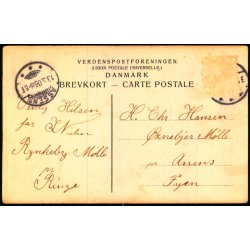 VERDENSPOSTFORENINGEN.
(UNION POSTALE UNIVERSELLE.)
DANMARK
BREVKORT — CARTE POSTALE
Venlig Hilsen
fra
Rynkeby Mølle
pr
Ringe
H. Chr Hansen
Ørnebjer Mølle
pr Assens
Fyen